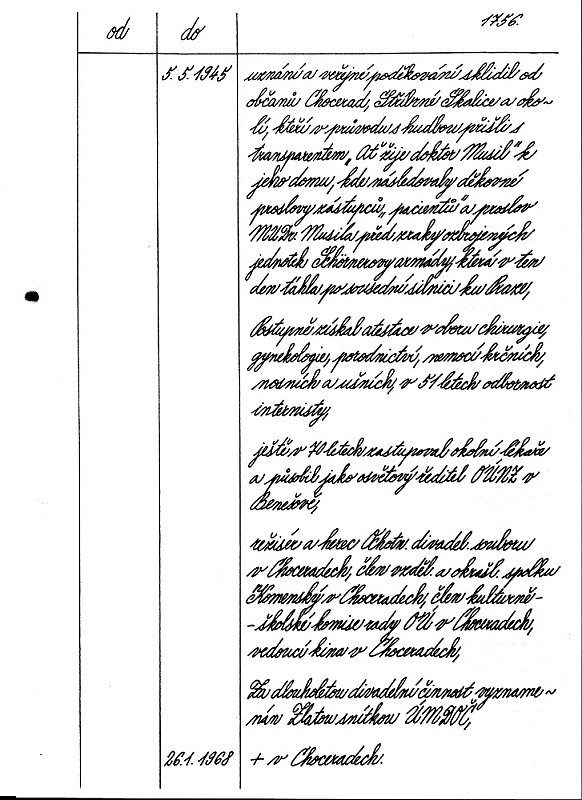 1756.
od do
5.5.1945 uznání a veřejné poděkování sklidil od
občanů Chocerad, Stříbrné Skalice a oko-
lí, kteří v průvodu s hudbou přišli s
transparentem „Ať žije doktor Musil" k
jeho domu, kde následovaly děkovné
proslovy zástupců „pacientů" a proslov
MUDr. Musila před zraky ozbrojených
jednotek Schörnerovy armády, která v ten
den táhla po sousední silnici ku Praze,
Postupně získal atestace v oboru chirurgie,
gynekologie, porodnictví, nemocí krčních,
nosních a ušních, v 51 letech odbornost
internisty,
ještě v 70 letech zastupoval okolní lékaře
a působil jako osvětový ředitel OÚNZ v
Benešově,
režisér a herec Ochotn. divadel. souboru
v Choceradech, člen vzděl. a okrašl. spolku
Komenský v Choceradech, člen kulturně-
-školské komise rady OÚ v Choceradech,
vedoucí kina v Choceradech,
Za dlouholetou divadelní činnost vyzname-
nán Zlatou snítkou ÚMDOČ,
26.1.1968 + v Choceradech.